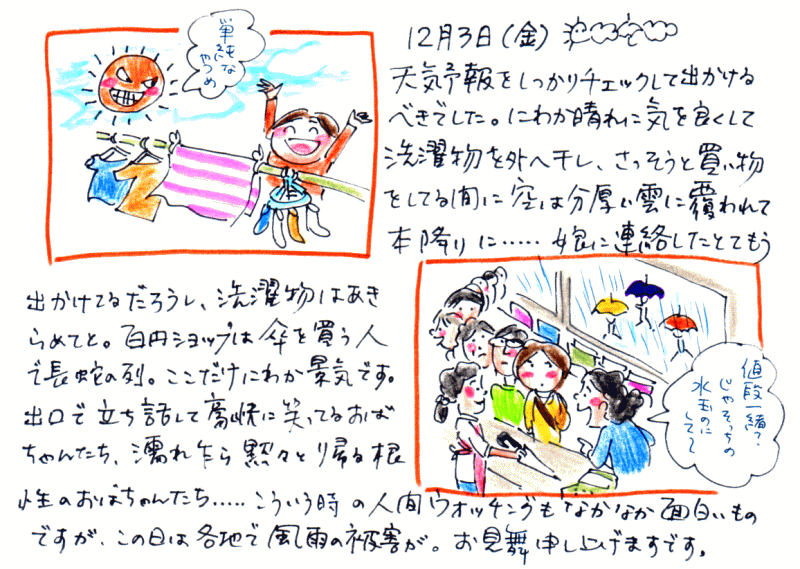 単純な
やつめ
12月3日(金)
天気予報をしっかりチェックして出かける
べきでした。にわか晴れに気を良くして
洗濯物を外へ干し、さっそうと買い物
をしてる間に空は分厚い雲に覆われて
本降りに……娘に連絡したとてもう
出かけてるだろうし、洗濯物はあき
らめてと。百円ショップは傘を買う人
で長蛇の列。ここだけにわか景気です。
出口で立ち話して豪快に笑ってるおば
ちゃんたち、濡れ乍ら黙々と帰る根
性のおばちゃんたち……こういう時の人間ウオッチングもなかなか面白いもの
ですが、この日は各地で風雨の被害が。お見舞申し上げますです。
値段一緒?
じゃそっちの
水玉のに
して〜